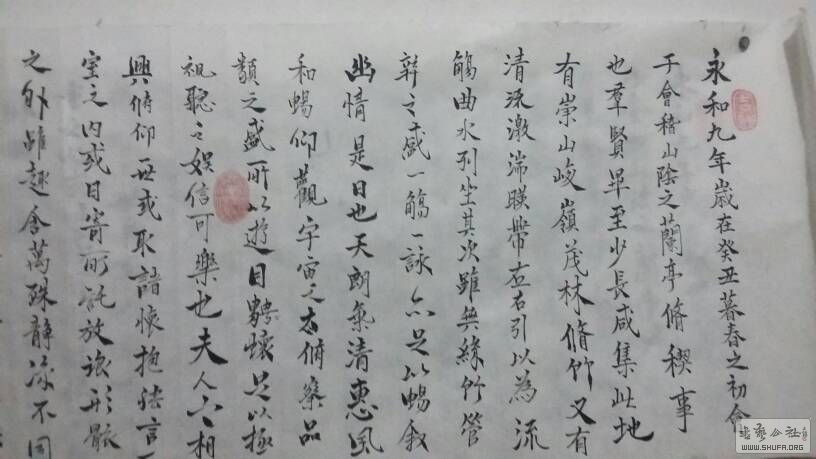 永和九年歲在癸丑暮春之初會
于會稽山陰之蘭亭脩稧事
也羣賢畢至少長咸集此地
有崇山峻嶺茂林脩竹又有
清流激湍暎帶左右引以為流
觴曲水列坐其次雖無絲竹管
弦之盛一觴一詠亦足以暢叙
幽情是日也天朗氣清惠風
和暢仰觀宇宙之大俯察品
類之盛所以遊目騁懷足以極
視聽之娛信可樂也夫人之相
與俯仰一世或取諸懷抱悟言一
室之內或因寄所託放浪形骸
之外雖趣舍萬殊靜躁不同
書藝公社
WWW.SHUFA.ORG